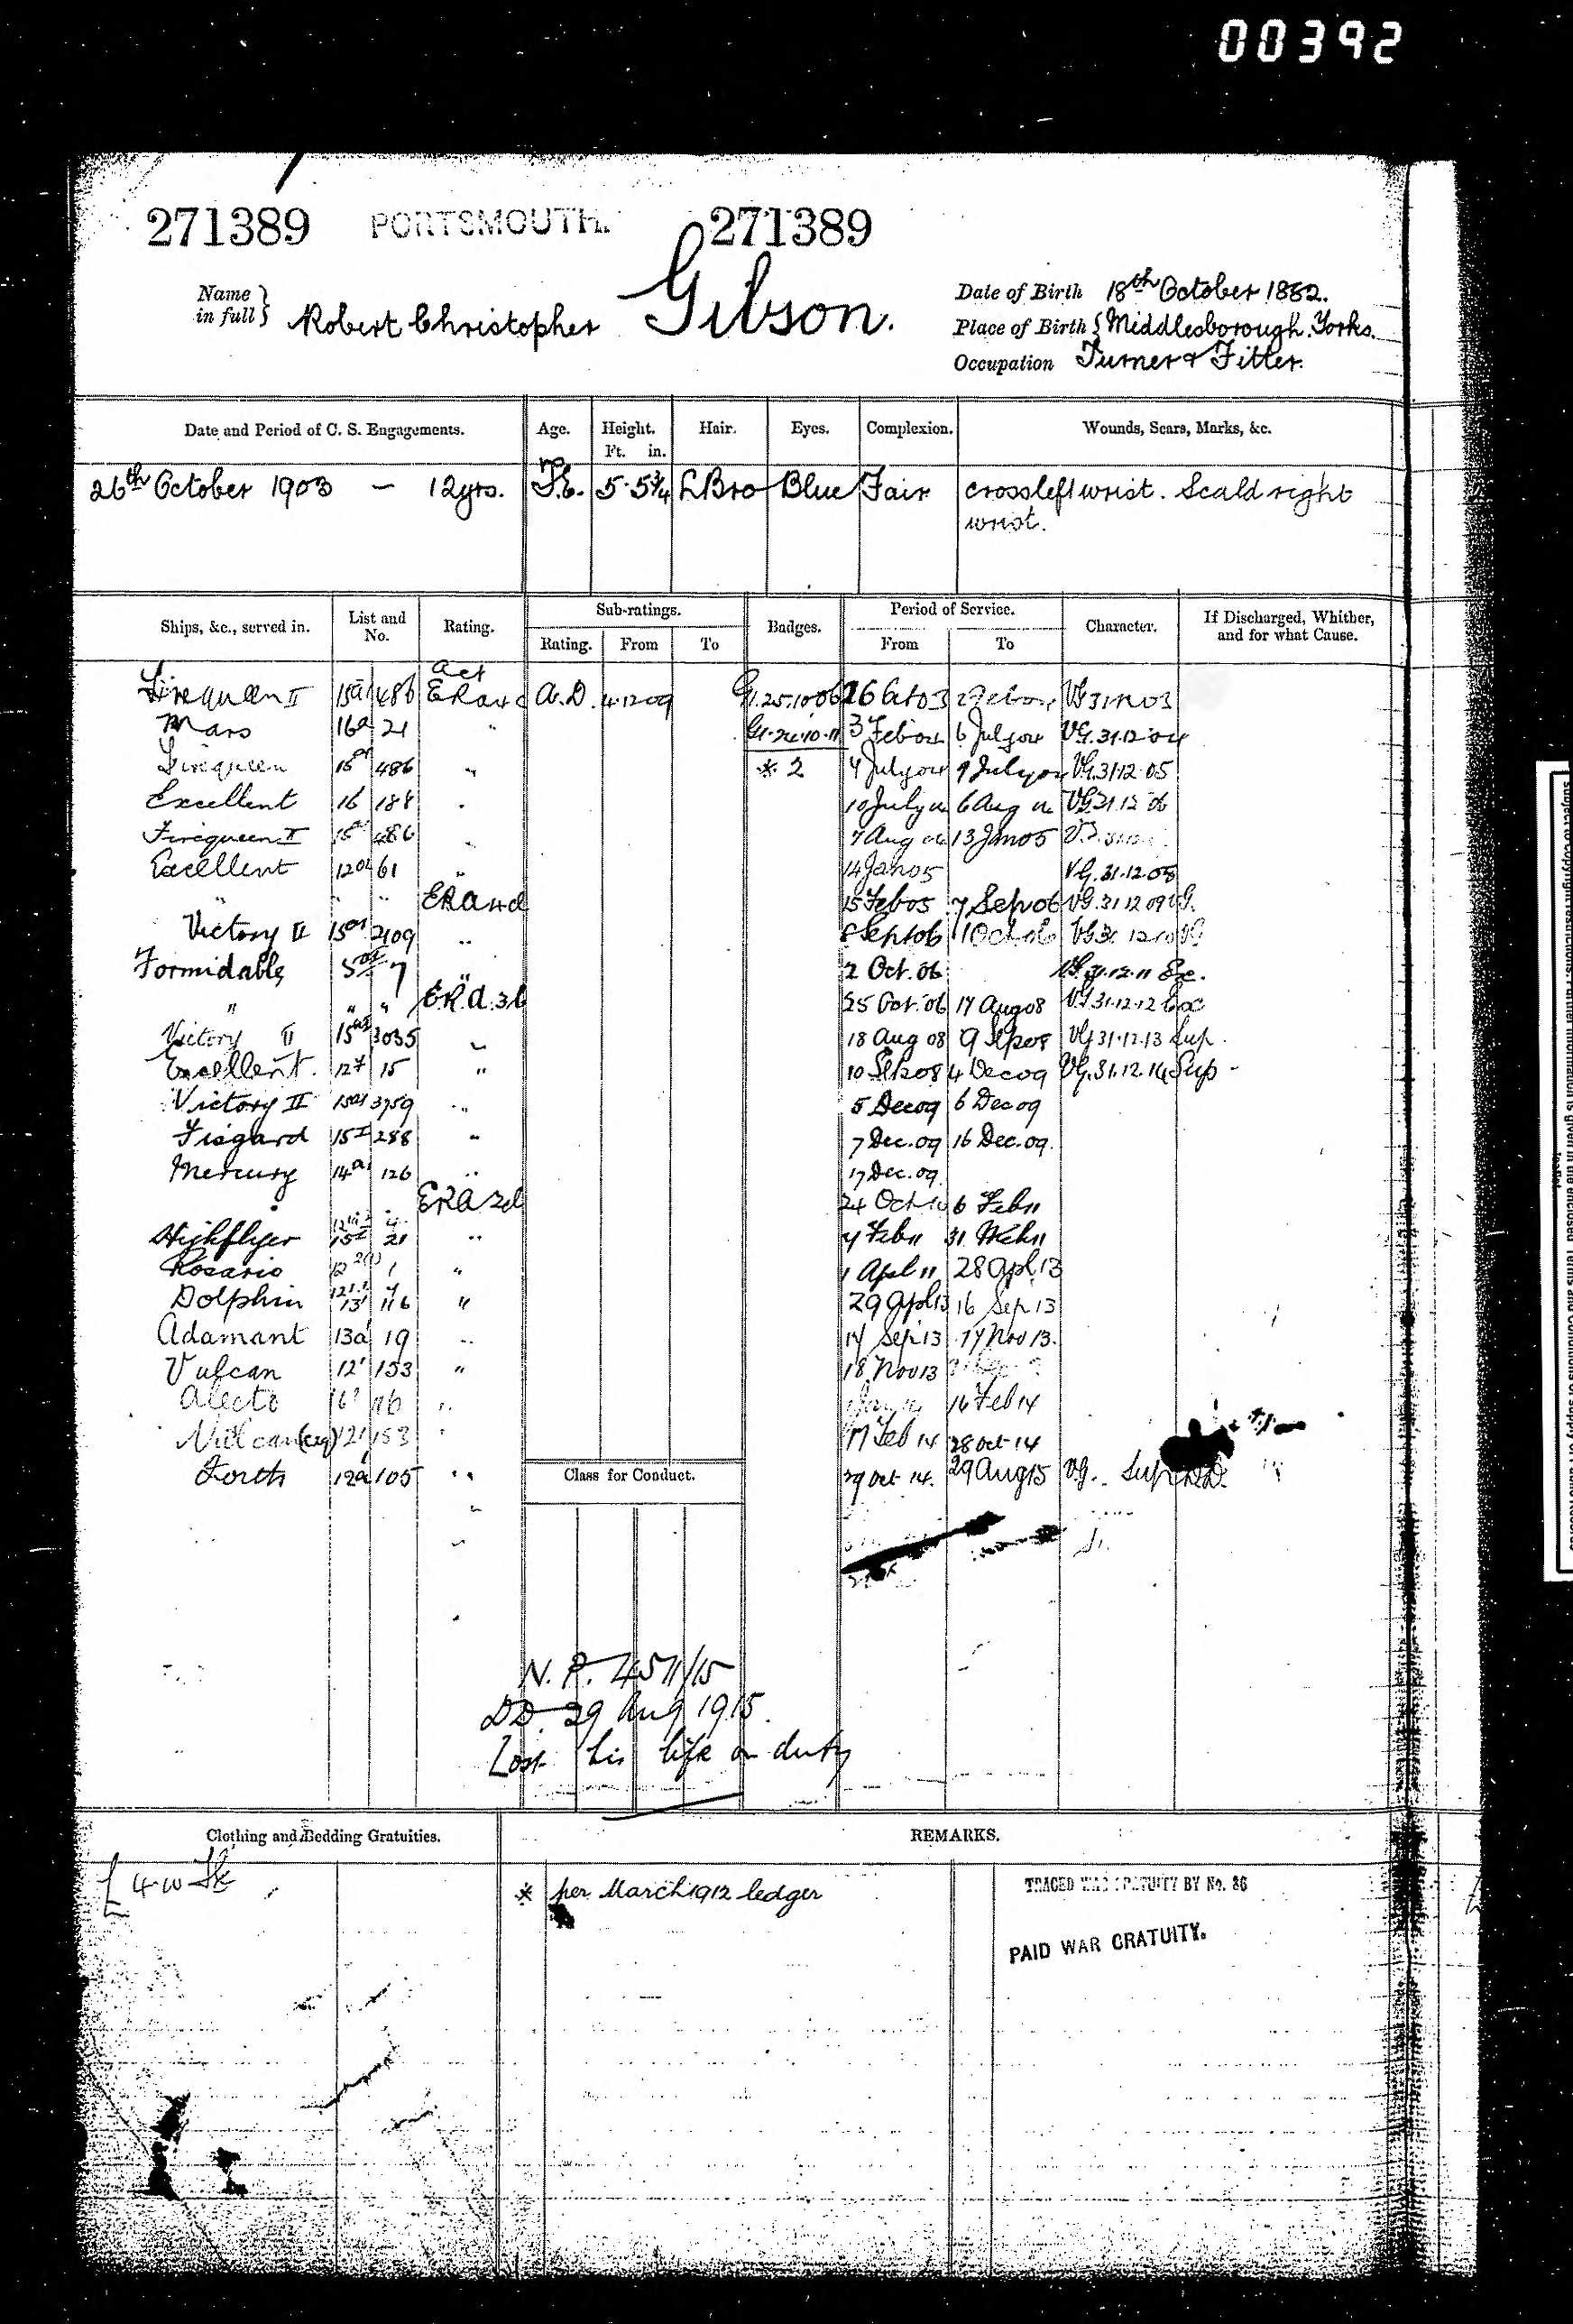 00392
271389 PORTSMOUTH. 271389
Name in full } Robert Christopher Gibson.
Date of Birth 18th October 1882.
Place of Birth { Middlesborough. Yorks.
Occupation Turner & Fitter.
Date and Period of C. S. Engagements. Age. Height. Ft. in. Hair. Eyes. Complexion. Wounds, Scars, Marks, &c.
26th October 1903 — 12 yrs. 5·5¾ L Bro Blue Fair cross left wrist. Scald right
wrist.
Ships, &c., served in. List and No. Rating. Sub-ratings. Rating. From To Badges. Period of Service. From To Character. If Discharged, Whither, and for what Cause.
Act
Firequeen II 15a1 486 ERA 4c A.D. 4.12.09 G1.25.10.06 26 Oct 03 2 Feb 04
Mars 16a 21 " 3 Feb 04 6 July 04 VG.31.12.04
Firequeen 15a1 486 " * 2 7 July 04 9 July 04 VG.31.12.05
Excellent 16 188 " 10 July 04 6 Aug 04 VG.31.12.06
Firequeen II 15a1 486 " 7 Aug 04 13 Jan 05
Excellent 12a1 61 " 14 Jan 05 VG.31.12.08
" " " ERA 4cl 15 Feb 05 7 Sep 06 VG.31.12.09 VG.
Victory II 15a1 2109 " 8 Sept 06 1 Oct 06
Formidable 5 7 " 2 Oct. 06 VG.31.12.11 Ex.
" " " E.R.A. 3cl 25 Oct. 06 17 Aug 08 VG 31.12.12 Ex
Victory II 15a2 3035 " 18 Aug 08 9 Sep 08 VG 31.12.13 Sup.
Excellent. 12a 15 " 10 Sep 08 4 Dec 09 VG.31.12.14 Sup
Victory II 15a1 3759 " 5 Dec 09 6 Dec 09
Fisgard 15I 288 " 7 Dec. 09 16 Dec. 09.
Mercury 14a1 126 " 17 Dec. 09
" " ERA 2cl 24 Oct 10 6 Feb 11
Highflyer 15I 21 " 7 Feb 11 31 Mch 11
Rosario 1 " 1 Apl 11 28 Apl 13
Dolphin 13 116 " 29 Apl 13 16 Sep 13
Adamant 13a 19 " 17 Sep 13 17 Nov 13.
Vulcan 12' 153 " 18 Nov 13
Alecto 16 " 16 Feb 14
Vulcan 12' 153 " 17 Feb 14 28 Oct 14
Forth 12a 105 " Class for Conduct. 29 Oct 14. 29 Aug 15 VG. Sup DD.
N.P. 4511/15
DD. 29 Aug 1915.
Lost his life on duty
Clothing and Bedding Gratuities. REMARKS.
* per March 1912 ledger
TRACED WAR GRATUITY BY No. 36
PAID WAR GRATUITY.